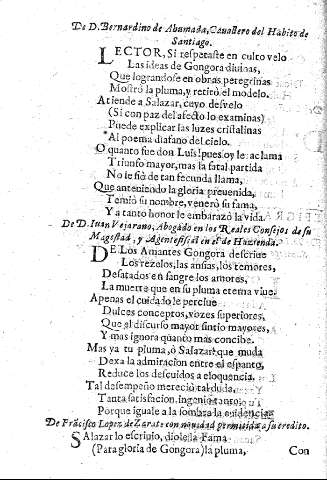 De D. Bernardino de Ahumada, Cauallero del Habito de
Santiago.
LECTOR, Si respetaste en culto velo
Las ideas de Gongora diuinas,
Que lograndose en obras peregrinas
Mostrò la pluma, y retirò el modelo.
Atiende a Salazar, cuyo desvelo
(Si con paz del afecto lo examinas)
Puede explicar las luzes cristalinas
Al poema diafano del cielo.
O quanto fue don Luis! pues oy le aclama
Triunfo mayor, mas la fatal partida
No le fiò de tan fecunda llama,
Que anteniendo la gloria preuenida,
Temiò su nombre, venerò su fama,
Y a tanto honor le embarazò la vida.
De D. Iuan Vejarano, Abogado en los Reales Consejos de su
Magestad, y Agente fiscal en el de Hazienda.
DE Los Amantes Gongora descriue
Los rezelos, las ansias, los temores,
Desatados en sangre los amores,
La muerte que en su pluma eterna viue.
Apenas el cuidado le perciue
Dulces conceptos, vozes superiores,
Que al discurso mayor sintio mayores,
Y mas ignora quanto mas concibe.
Mas ya tu pluma, ò Salazar! que muda
Dexa la admiracion entre el espanto,
Reduce los descuidos a eloquencia,
Tal desempeño mereciò tal duda,
Tanta satisfacion ingenio tanto,
Porque iguale a la sombra la euidencia.
De Frācisco Lopez de Zarate con nouedad permitida a su credito.
Salazar lo escriuio, diole la Fama
(Para gloria de Gongora) la pluma,
Con